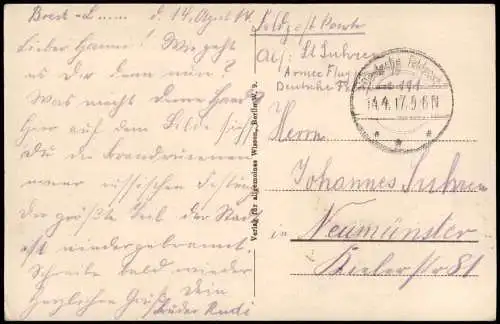 Brest-L...... d. 14. April 17.
Lieber Hanne! Wie geht
es Dir denn nun?
Was macht deine
Hier auf dem Bilde siehst
Du die Brandruinen
einer russischen Festung
der größte Teil der Stadt
ist niedergebrannt.
Schreibe bald wieder
Herzlichen Gruß Dein
Bruder Rudi
Verlag für allgemeines Wissen, Berlin W. 9.
Feldpost Karte
Abs: Lt Suhren
Armee Flug
Deutsche
Deutsche Feldpost
191
14.4.17. 5-6 N
Herrn
Johannes Suhren
in Neumünster
Kielerstr 81